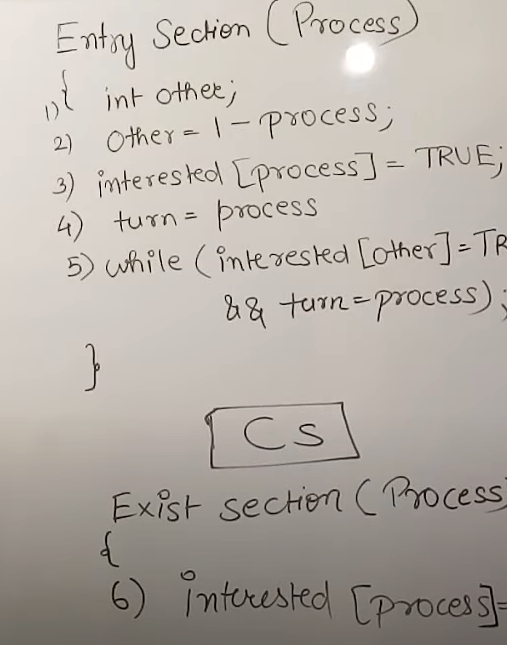 Entry Section (Process)
{
1) int other;
2) Other = 1 - process;
3) interested [process] = TRUE;
4) turn = process
5) while (interested [other] = TR
&& turn = process);
}
CS
Exist section (Process)
{
6) interested [process] =